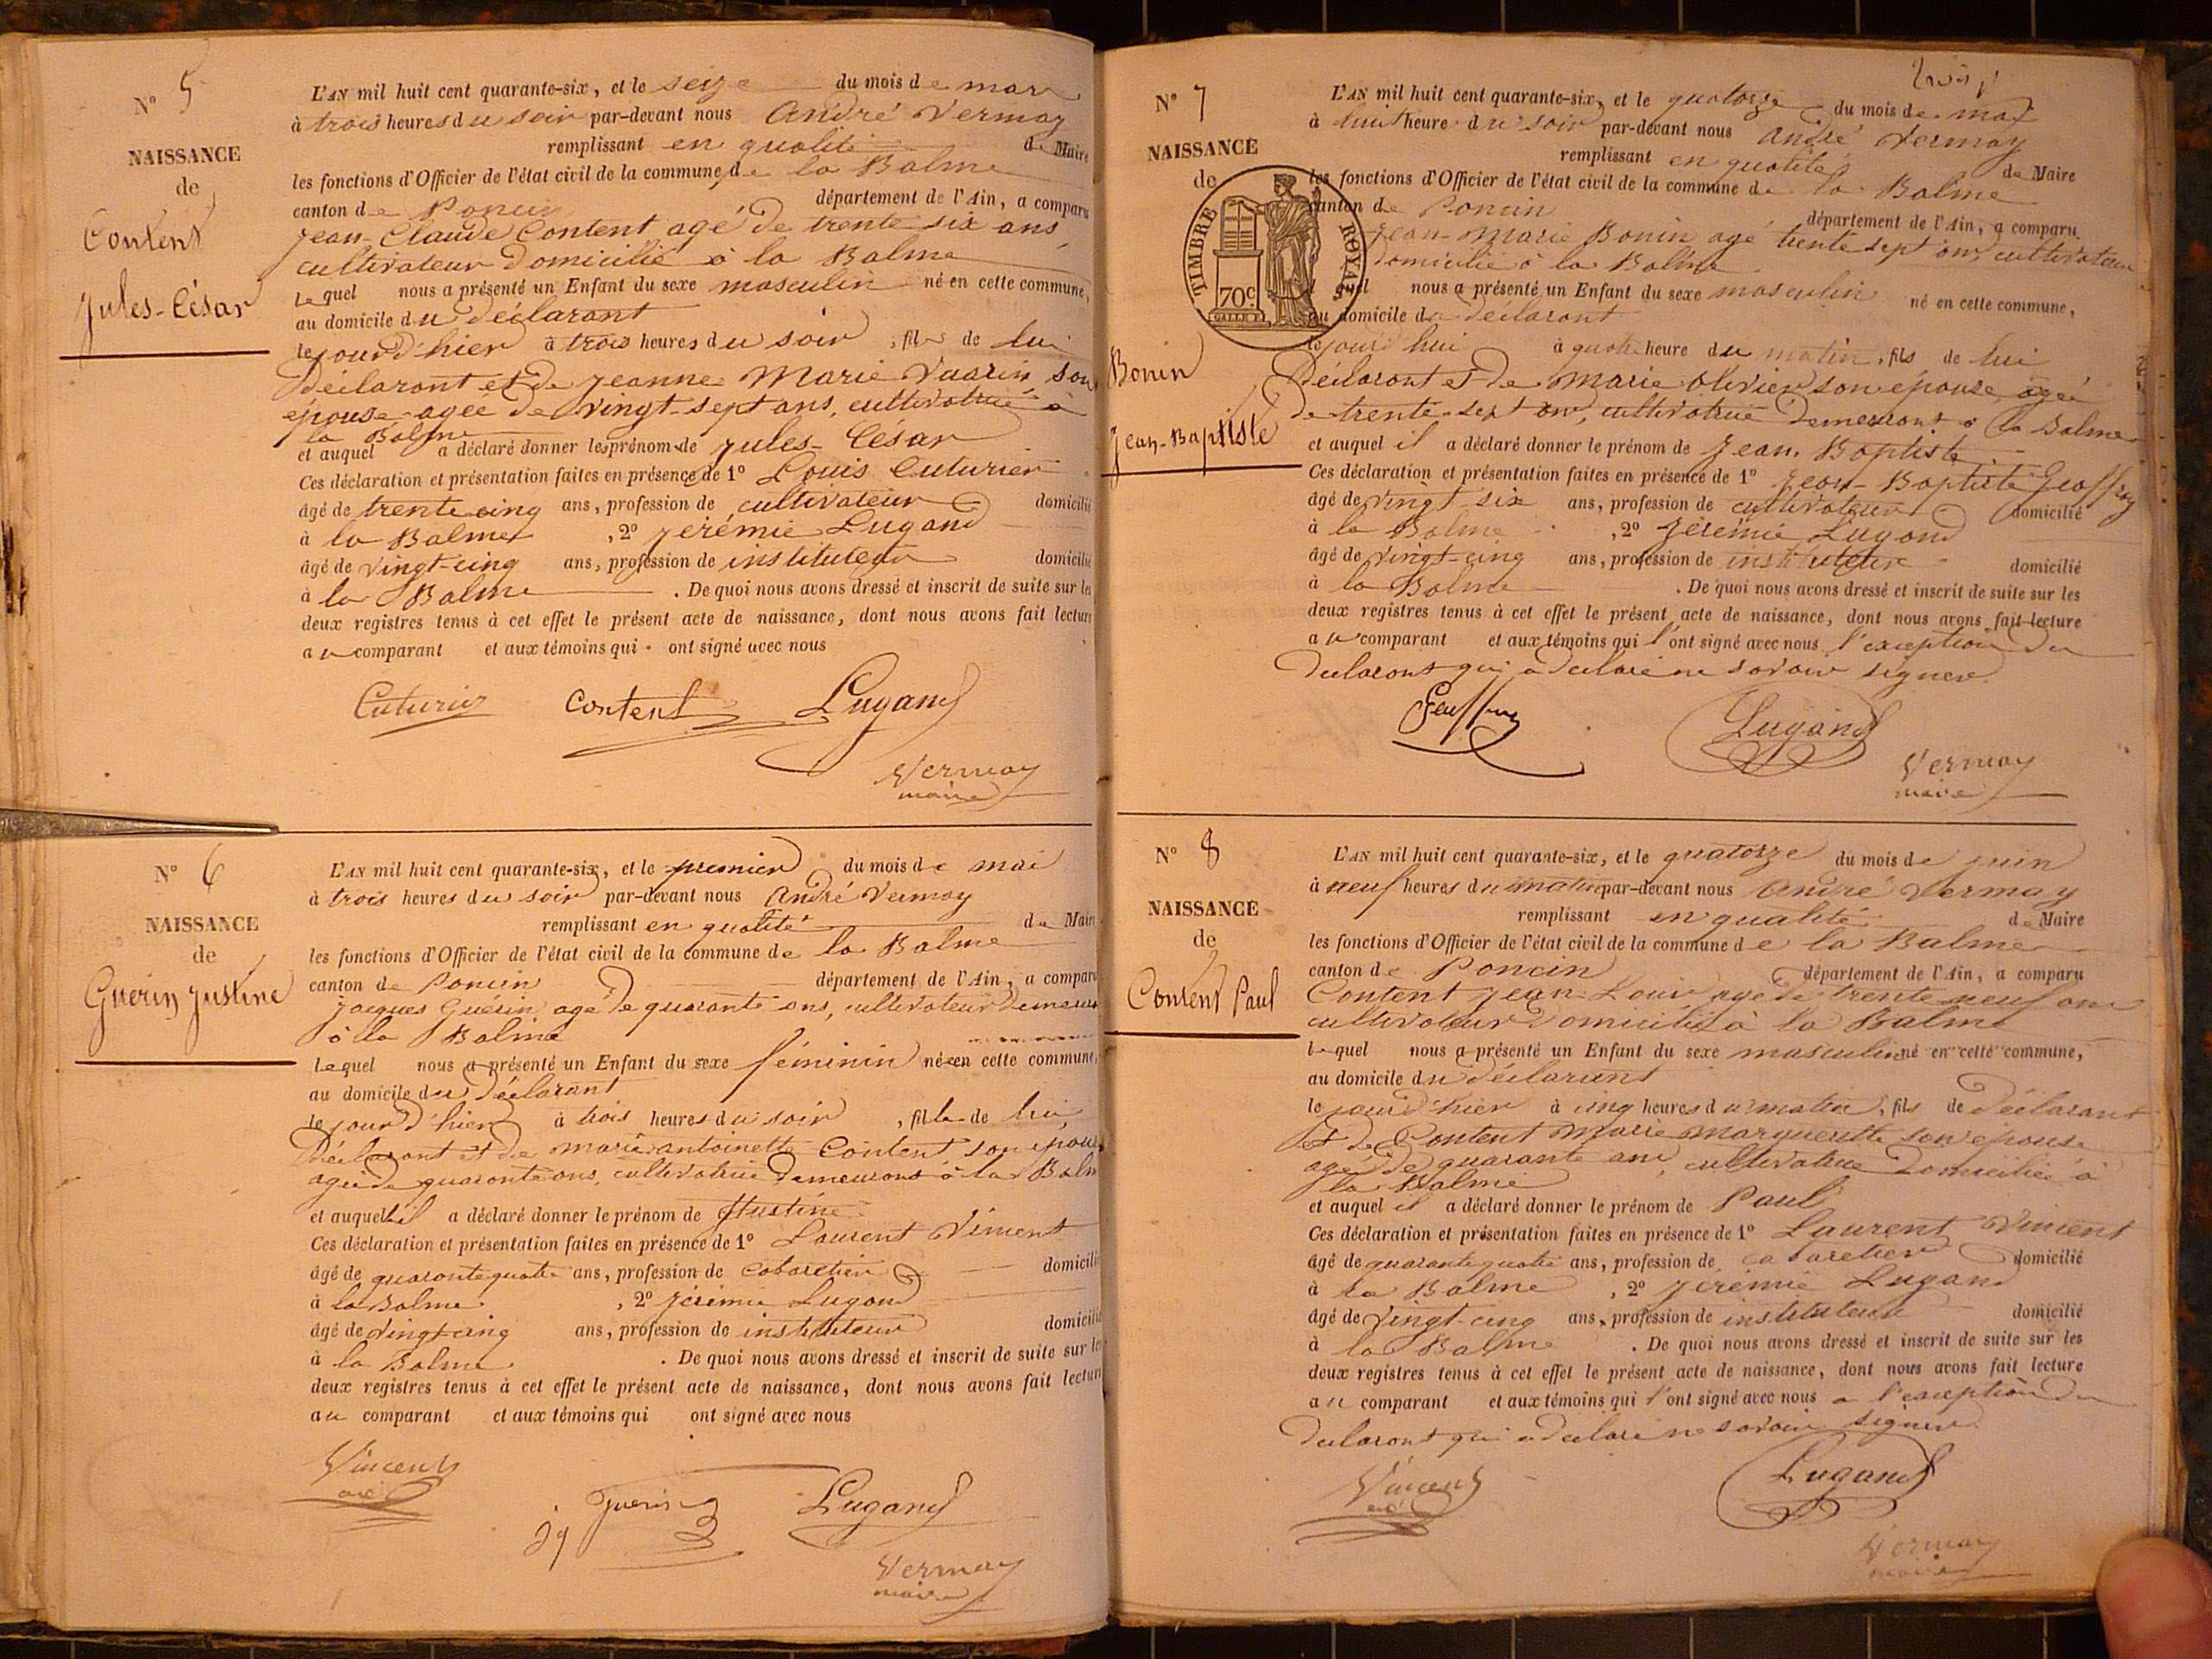 N° 5
NAISSANCE
de
Content
Jules-César
L'AN mil huit cent quarante-six, et le seize du mois de mars
à trois heures du soir par-devant nous André Vermay
remplissant en qualité de Maire
les fonctions d'Officier de l'état civil de la commune de la Balme
canton de Poncin département de l'Ain, a comparu
Jean-Claude Content agé de trente six ans,
cultivateur domicilié à la Balme
lequel nous a présenté un Enfant du sexe masculin né en cette commune,
au domicile du déclarant
le jour d'hier à trois heures du soir, fils de lui
déclarant et de Jeanne Marie son
épouse agée de vingt-sept ans, cultivatrice à
la Balme
et auquel a déclaré donner les prénoms de Jules-César
Ces déclaration et présentation faites en présence de 1° Louis Cuturier
âgé de trente cinq ans, profession de cultivateur domicilié
à la Balme, 2° Jérémie Lugand
âgé de vingt-cinq ans, profession de instituteur domicilié
à la Balme. De quoi nous avons dressé et inscrit de suite sur les
deux registres tenus à cet effet le présent acte de naissance, dont nous avons fait lecture
au comparant et aux témoins qui ont signé avec nous
Cuturier Content Lugand
Vermay
maire
N° 6
NAISSANCE
de
Guérin Justine
L'AN mil huit cent quarante-six, et le premier du mois de mai
à trois heures du soir par-devant nous André Vermay
remplissant en qualité de Maire
les fonctions d'Officier de l'état civil de la commune de la Balme
canton de Poncin département de l'Ain, a comparu
Jacques Guérin agé de quarante ans, cultivateur
à la Balme
Lequel nous a présenté un Enfant du sexe féminin né en cette commune,
au domicile du déclarant
le jour d'hier à trois heures du soir, fille de lui
déclarant et de marie antoinette Content son épouse
agée de quarante ans, cultivatrice demeurant à la Balme
et auquel il a déclaré donner le prénom de Justine
Ces déclaration et présentation faites en présence de 1° Laurent Vincent
âgé de quarante quatre ans, profession de cabaretier domicilié
à la Balme, 2° Jérémie Lugand
âgé de vingt-cinq ans, profession de instituteur domicilié
à la Balme. De quoi nous avons dressé et inscrit de suite sur les
deux registres tenus à cet effet le présent acte de naissance, dont nous avons fait lecture
au comparant et aux témoins qui ont signé avec nous
Vincent
Guerin Lugand
Vermay
maire
N° 7
NAISSANCE
de
TIMBRE ROYAL
70c.
Bonin
Jean-Baptiste
L'AN mil huit cent quarante-six, et le quatorze du mois de mai
à huit heure du soir par-devant nous André Vermay
remplissant en qualité de Maire
les fonctions d'Officier de l'état civil de la commune de la Balme
canton de Poncin département de l'Ain, a comparu
Jean-Marie Bonin agé trente sept ans, cultivateur
domicilié à la Balme
nous a présenté un Enfant du sexe masculin né en cette commune,
au domicile du déclarant
à quatre heure du matin, fils de lui
déclarant et de Marie Olivier son épouse agée
de trente-sept ans, cultivatrice demeurant à la Balme
et auquel il a déclaré donner le prénom de Jean-Baptiste
Ces déclaration et présentation faites en présence de 1° Jean-Baptiste Geoffray
âgé de vingt-six ans, profession de cultivateur domicilié
à la Balme, 2° Jérémie Lugand
âgé de vingt-cinq ans, profession de instituteur domicilié
à la Balme. De quoi nous avons dressé et inscrit de suite sur les
deux registres tenus à cet effet le présent acte de naissance, dont nous avons fait lecture
au comparant et aux témoins qui l'ont signé avec nous l'exception du
déclarant qui a déclaré ne savoir signer.
Lugand
Vermay
maire
N° 8
NAISSANCE
de
Content Paul
L'AN mil huit cent quarante-six, et le quatorze du mois de juin
à neuf heures du matin par-devant nous André Vermay
remplissant en qualité de Maire
les fonctions d'Officier de l'état civil de la commune de la Balme
canton de Poncin département de l'Ain, a comparu
Content Jean-Louis agé de trente neuf ans
cultivateur domicilié à la Balme
lequel nous a présenté un Enfant du sexe masculin né en cette commune,
au domicile du déclarant
le jour d'hier à cinq heures du matin, fils de déclarant
et de Content Marie Marguerite son épouse
agée de quarante ans, cultivatrice domiciliée à
la Balme
et auquel il a déclaré donner le prénom de Paul
Ces déclaration et présentation faites en présence de 1° Laurent Vincent
âgé de quarante quatre ans, profession de cabaretier domicilié
à la Balme, 2° Jérémie Lugand
âgé de vingt-cinq ans, profession de instituteur domicilié
à la Balme. De quoi nous avons dressé et inscrit de suite sur les
deux registres tenus à cet effet le présent acte de naissance, dont nous avons fait lecture
au comparant et aux témoins qui l'ont signé avec nous a l'exception du
déclarant qui a déclaré ne savoir signer
Vincent Lugand
Vermay
maire